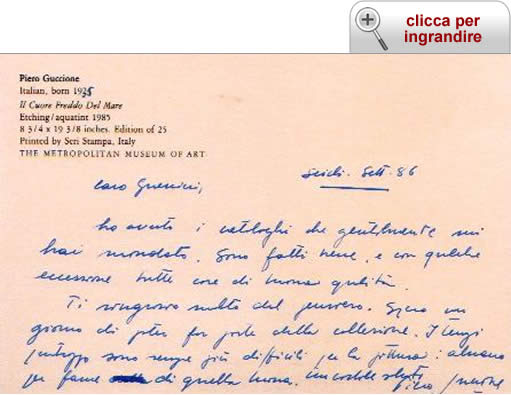 clicca per
ingrandire
Piero Guccione
Italian, born 1935
Il Cuore Freddo Del Mare
Etching/aquatint 1985
8 3/4 x 19 3/8 inches. Edition of 25
Printed by Scri Stampa, Italy
THE METROPOLITAN MUSEUM OF ART
Scicli. Sett. 86
Caro Guerrini,
ho avuto i cataloghi che gentilmente mi
hai mandato. Sono fatti bene, e con qualche
eccessione tutte cose di buona qualità.
Ti ringrazio molto del pensiero. Spero un
giorno di poter far parte della collezione. I tempi
purtroppo sono sempre più difficili per la pittura: almeno
per farne di quella buona. Un cordiale saluto
Piero Guccione